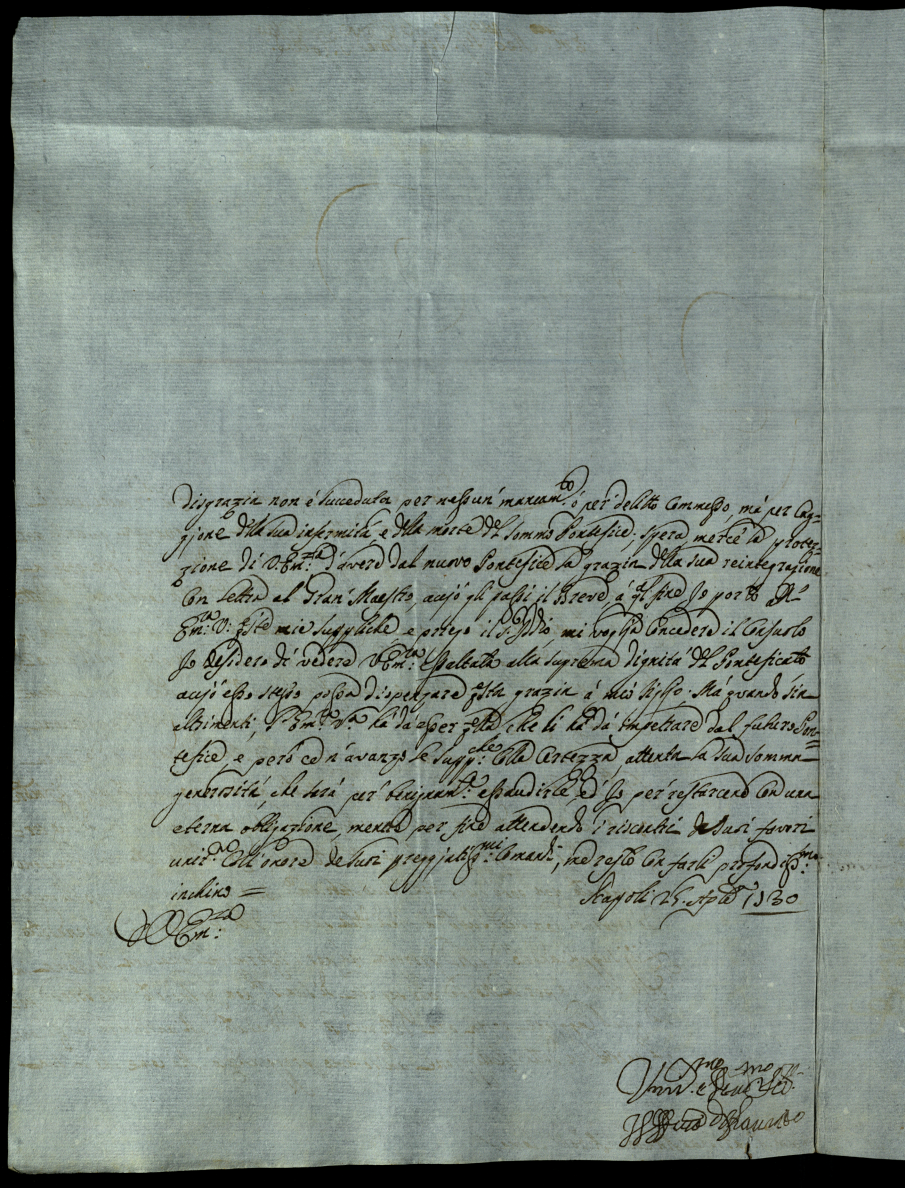 disgrazia non è succeduta per nessun' mancam.to ó per' delitto commesso, má per cag=
gione della sua infermitá, e della morte del sommo Pontefice; spera mercé la protez=
zione di V. Em.za d'avere dal nuovo Pontefice la grazia della sua reintegrazione
con lettera al Gran' Maestro, acció gli passi il Breve á tal fine Io porto all'
Em.za V. queste mie suppliche, e priego il Sig. Iddio, mi voglia concedere il consuolo
Io desidero di vedere V. Em.za essaltata alla suprema dignitá del Pontificato
acció esso stesso possa dispenzare questa grazia á mio figlio. Má quando sia
altrimenti, l'Em.za V.ra há da esser quella, che li há da impettrare dal futuro Pon=
tefice, e peró ce n'avanzo le supp.che colla certezza attenta la sua somma
generositá, che sará per' benignam.te essaudirle, ed Io per' restarcene con una
eterna obligazione, mentre per fine attendendo i riscontri de suoi favori
unit.te coll'onore de suoi preggiatiss.mi comandi, me resto con farli profondiss.mo
inchino =
Napoli 25. Aple 1730
D V. Em.za
Um.mo e Dev.mo